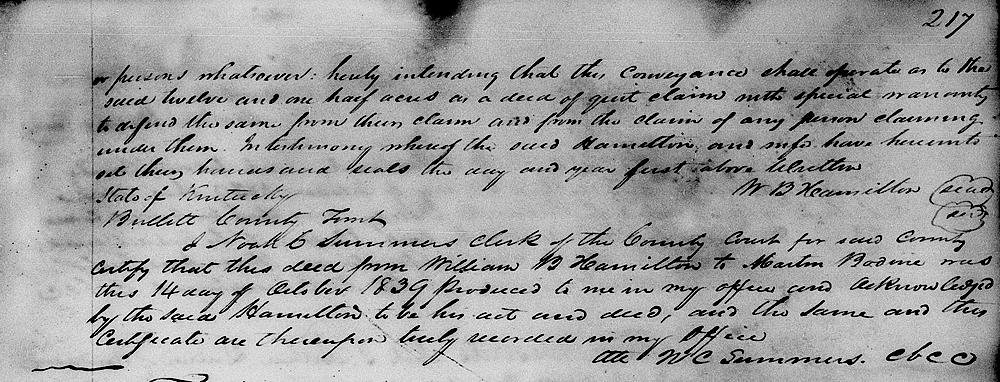 217
or persons whatsoever: hereby intending that this Conveyance shall operate as to the
said twelve and one half acres as a deed of quit claim with special warranty
to defend the same from their claim and from the claim of any person claiming
under them. In testimony whereof the said Hamilton, and wife have hereunto
set their hands and seals the day and year first above Written
W B Hamilton seal
State of Kentucky seal
Bullitt County Sct
I Noah C Summers Clerk of the County Court for said County
Certify that this deed from William B Hamilton to Martin Bodine was
this 14 day of October 1839 Produced to me in my office and Acknowledged
by the said Hamilton to be his act and deed, and the same and this
Certificate are thereupon truly recorded in my Office
Att N C Summers. C b C C